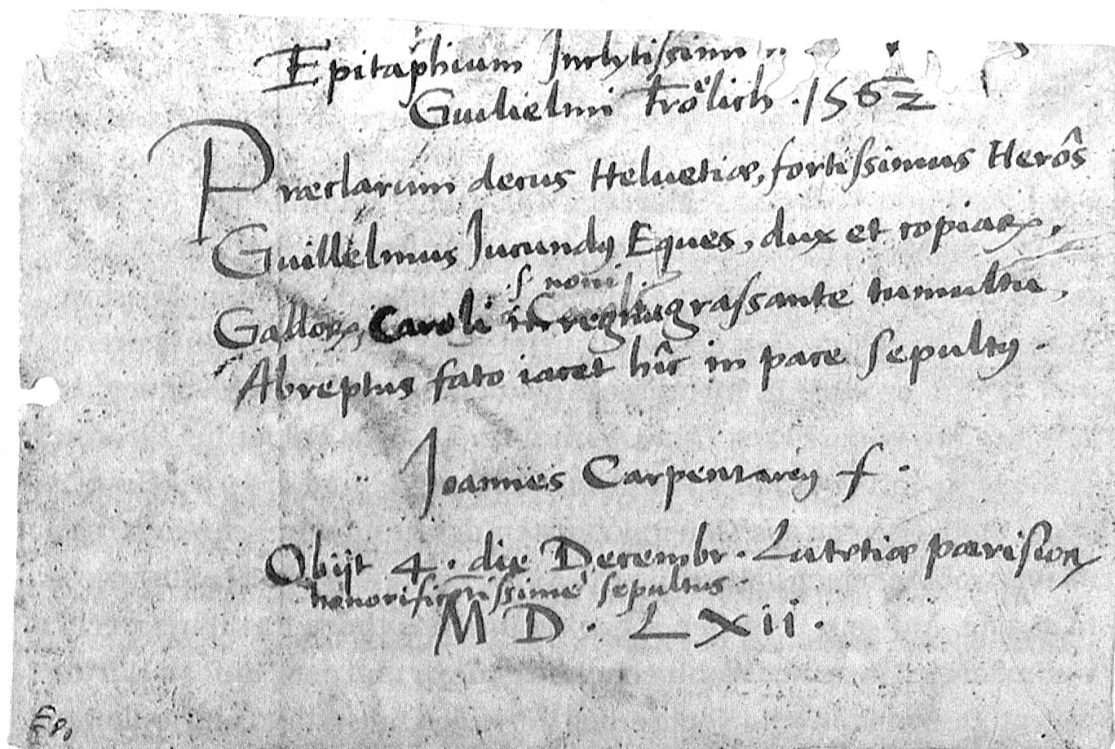 Epitaphium Inclytissimi
Guilielmi Frőlich . 1562
Præclarum decus Helvetiæ, fortissimus Herôs
Guillelmus Jucundꝰ Eques, dux et copiaꝝ,
ſ. noni
Galloꝝ, Caroli in regnū grassante tumultu,
Abreptus fato iacet hîc in pace sepultꝰ.
Joannes Carpentariꝰ f.
Obijt 4. die Decembr. Lutetiæ parisioꝝ
honorificētissime sepultus.
M D. LXii.